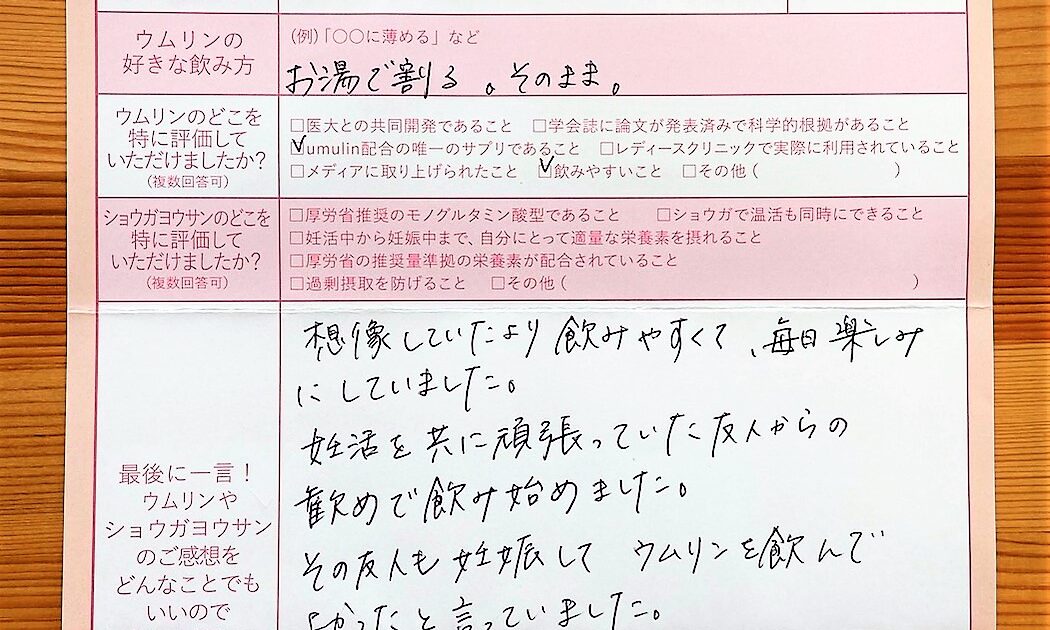 ウムリンの
好きな飲み方
(例)「○○に薄める」など
お湯で割る。そのまま。
ウムリンのどこを
特に評価して
いただけましたか?
(複数回答可)
□医大との共同開発であること □学会誌に論文が発表済みで科学的根拠があること
☑umulin配合の唯一のサプリであること □レディースクリニックで実際に利用されていること
□メディアに取り上げられたこと ☑飲みやすいこと □その他( )
ショウガヨウサンのどこを
特に評価して
いただけましたか?
(複数回答可)
□厚労省推奨のモノグルタミン酸型であること □ショウガで温活も同時にできること
□妊活中から妊娠中まで、自分にとって適量な栄養素を摂れること
□厚労省の推奨量準拠の栄養素が配合されていること
□過剰摂取を防げること □その他( )
最後に一言!
ウムリンや
ショウガヨウサン
のご感想を
どんなことでも
いいので
想像していたより飲みやすくて、毎日楽しみ
にしていました。
妊活を共に頑張っていた友人からの
歓めで飲み始めました。
その友人も妊娠して ウムリンを飲んで
よかったと言っていました。